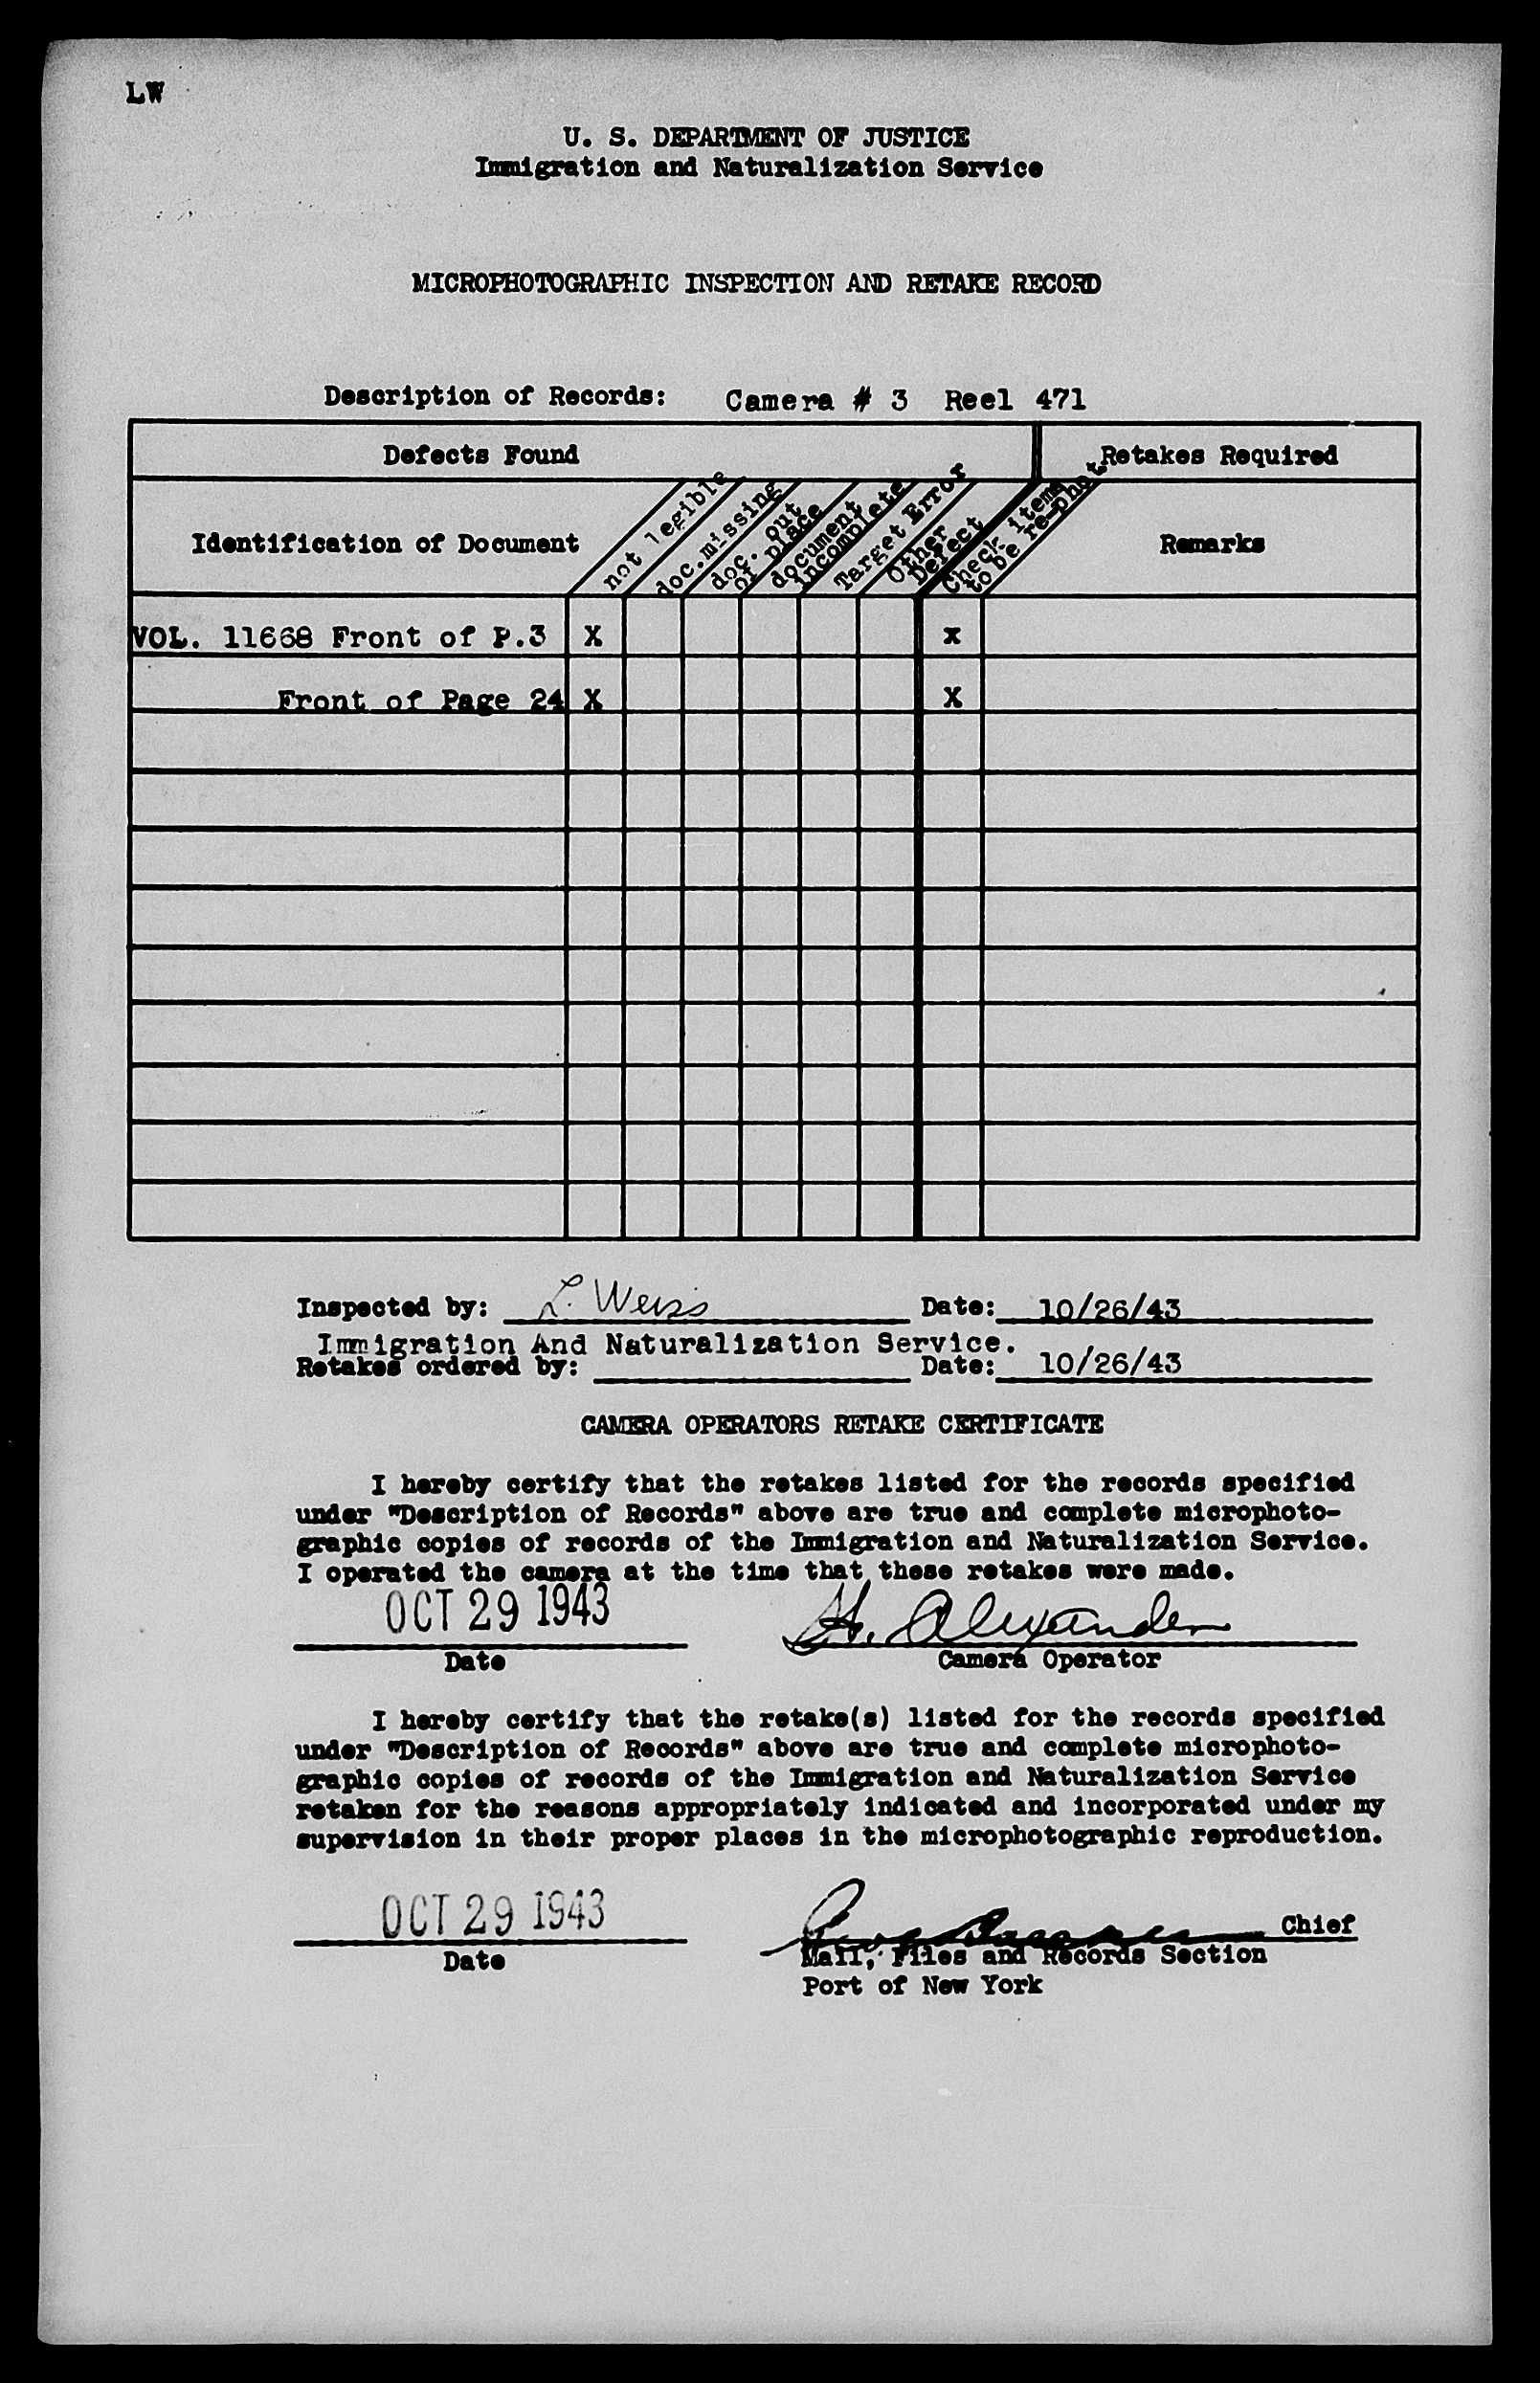 LW
U. S. DEPARTMENT OF JUSTICE
Immigration and Naturalization Service
MICROPHOTOGRAPHIC INSPECTION AND RETAKE RECORD
Description of Records: Camera # 3 Reel 471
Defects Found Retakes Required
Identification of Document
not legible
doc.missing
doc. out
of place
document
incomplete
Target Error
Other
Defect
Check items
to be re-phot.
Remarks
VOL. 11668 Front of P.3 X x
Front of Page 24 X X
Inspected by: L. Weiss Date: 10/26/43
Immigration And Naturalization Service.
Retakes ordered by: Date: 10/26/43
CAMERA OPERATORS RETAKE CERTIFICATE
I hereby certify that the retakes listed for the records specified
under "Description of Records" above are true and complete microphoto-
graphic copies of records of the Immigration and Naturalization Service.
I operated the camera at the time that these retakes were made.
OCT 29 1943 H. Alexander
Date Camera Operator
I hereby certify that the retake(s) listed for the records specified
under "Description of Records" above are true and complete microphoto-
graphic copies of records of the Immigration and Naturalization Service
retaken for the reasons appropriately indicated and incorporated under my
supervision in their proper places in the microphotographic reproduction.
OCT 29 1943 Chief
Date Mail, Files and Records Section
Port of New York